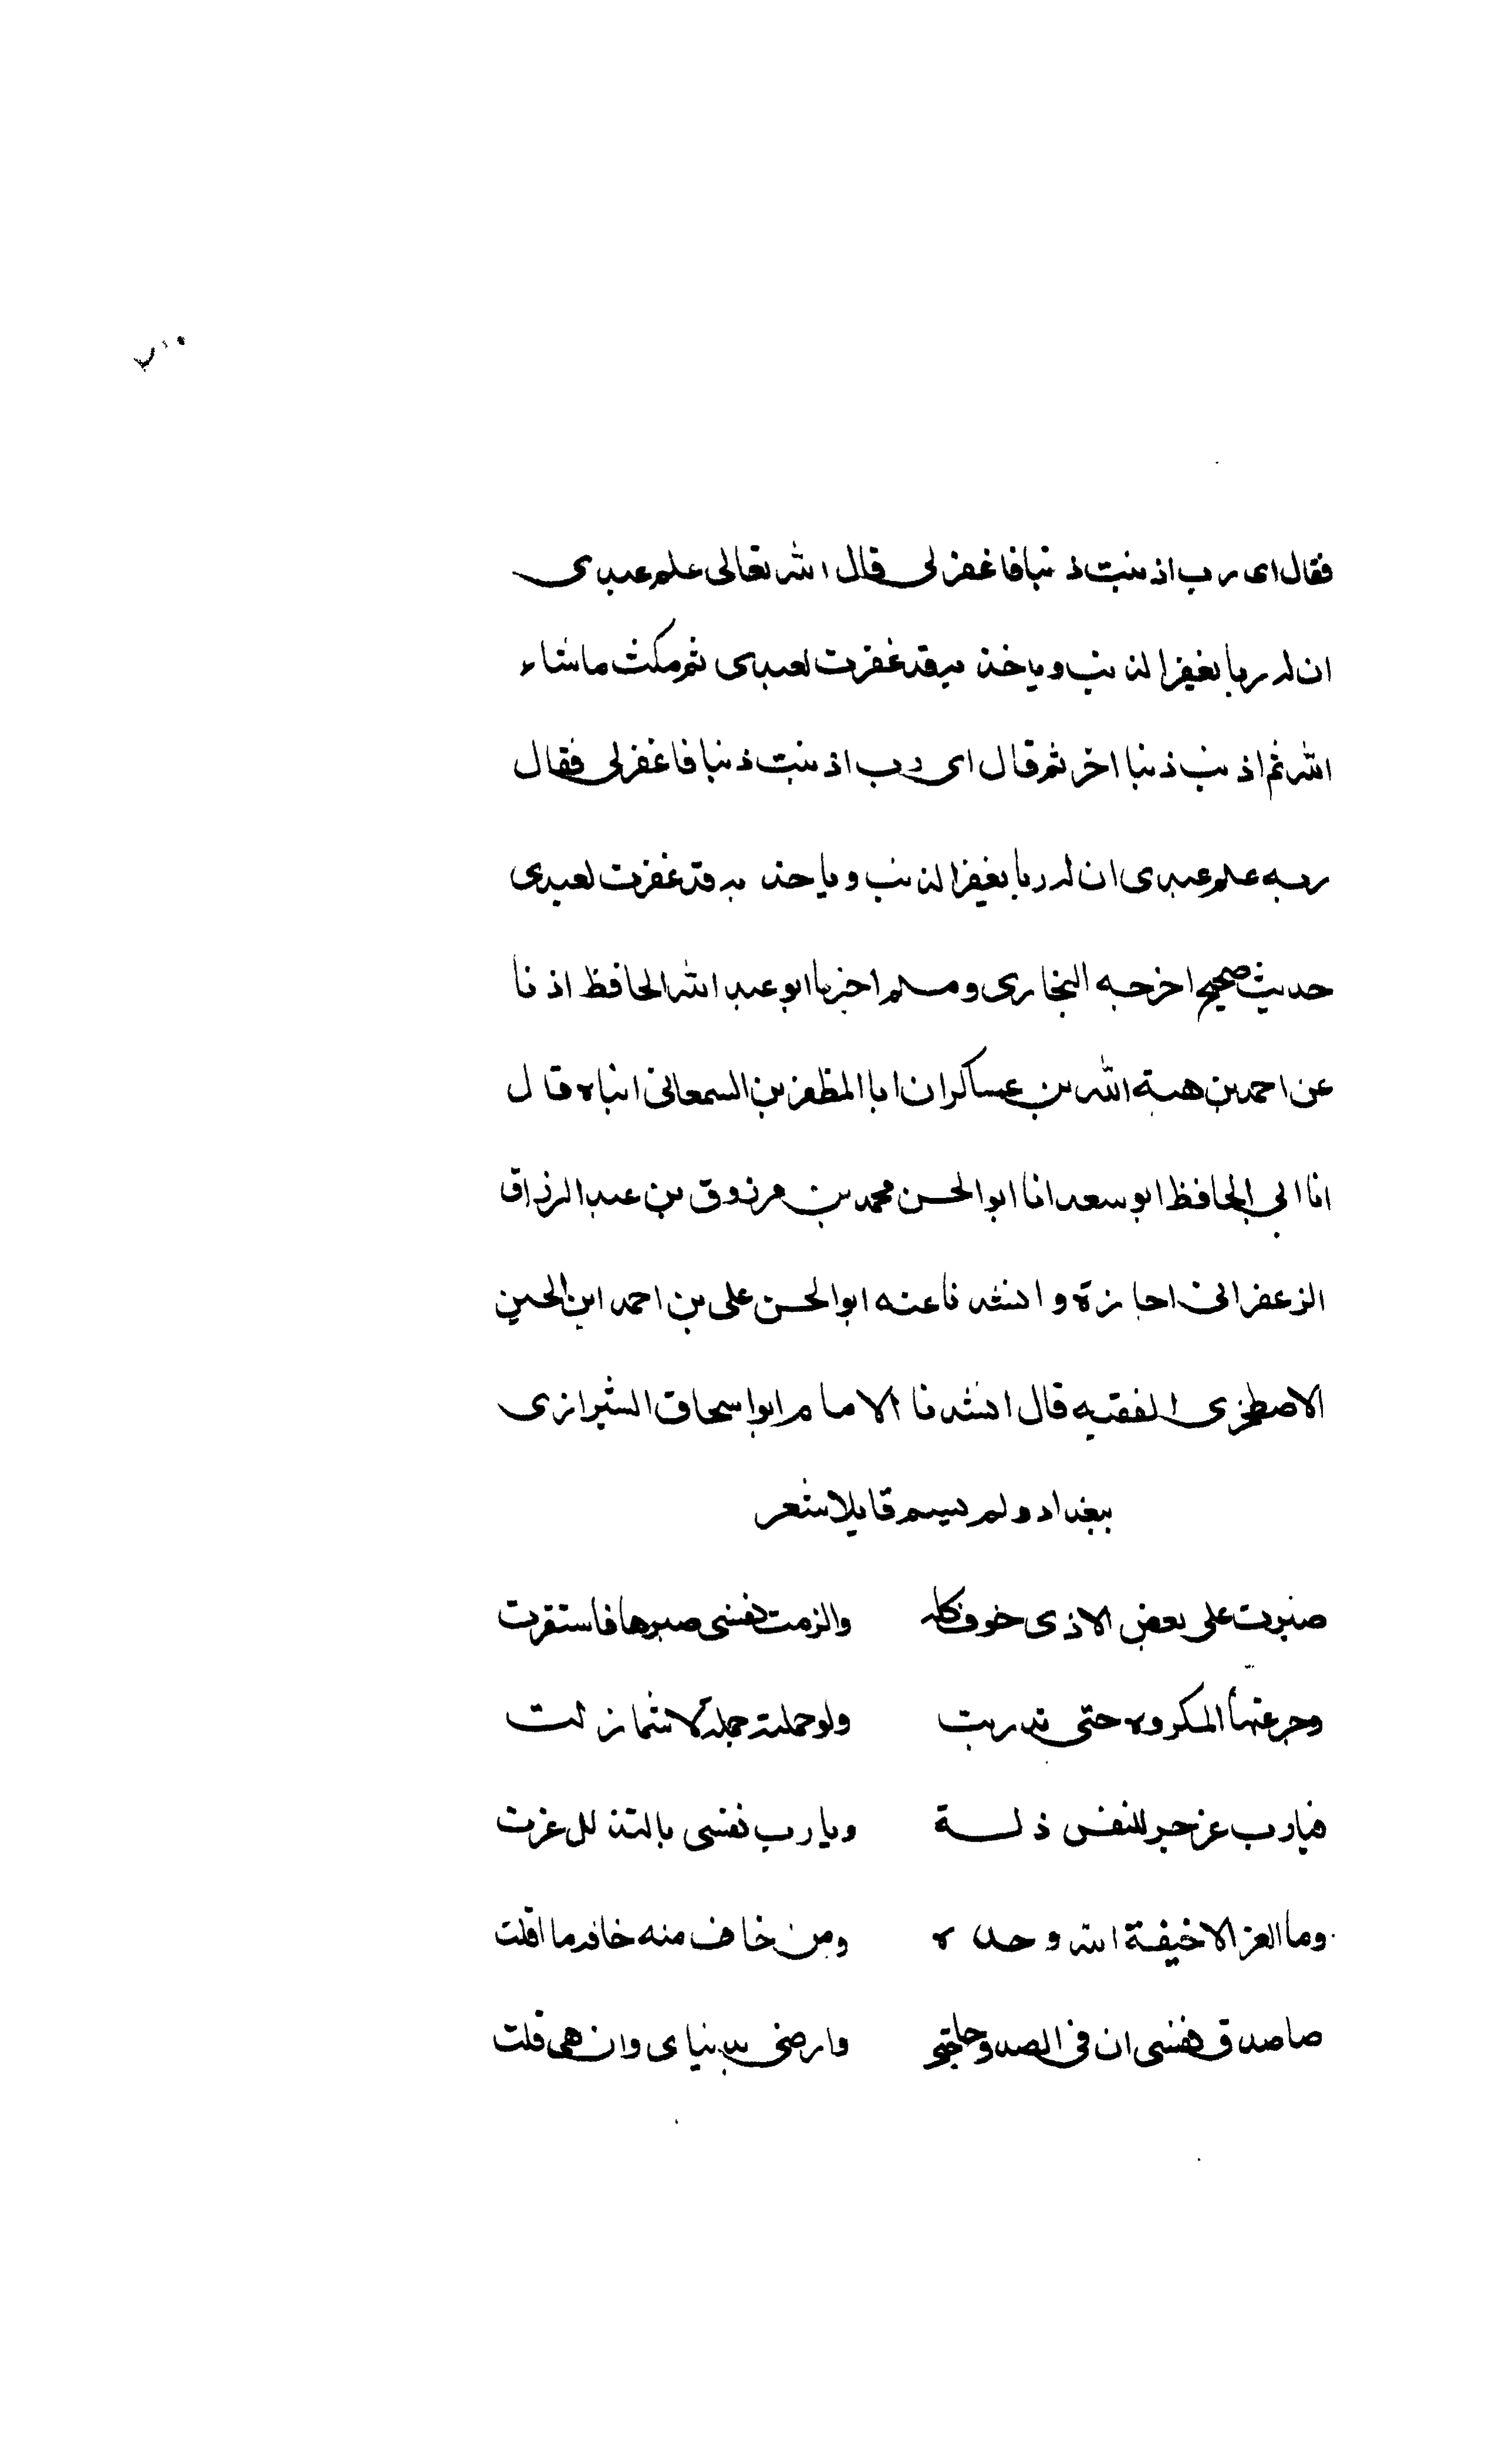 فقال اى رب اذنبت ذنبا فاغفر لى قال الله تعالى علم عبدى
ان له ربا يغفر الذنب وياخذ به قد غفرت لعبدى ثم مكث ما شاء
الله ثم اذنب ذنبا اخر ثم قال اى رب اذنبت ذنبا فاغفر لى فقال
ربه علم عبدى ان له ربا يغفر الذنب وياخذ به قد غفرت لعبدى
حديث صحيح اخرجه البخارى ومسلم اخبرنا ابو عبد الله الحافظ اذنا
عن احمد بن هبة الله بن عساكر ان ابا المظفر بن السمعانى انباه قال
انا ابي الحافظ ابو سعد انا ابو الحسن محمد بن مرزوق بن عبد الرزاق
الزعفرانى اجازة وانشدنا عنه ابو الحسن على بن احمد ابن الحسين
الاصطخرى الفقيه قال انشدنا الامام ابو اسحاق الشيرازى
ببغداد ولم يسم قايلا شعر
صبرت على بعض الاذى خوف كله والزمت نفسى صبرها فاستقرت
وجرعتها المكروه حتى تدربت ولو حملته جملة لاشمازت
فيا رب عز جر للنفس ذلة ويا رب نفسى بالتذلل عزت
وما العز الا خيفة الله وحده ومن خاف منه خافه ما اقلت
صاصدق نفسى ان فى الصدق حاجتى وارضى بدنياى وان هى قلت